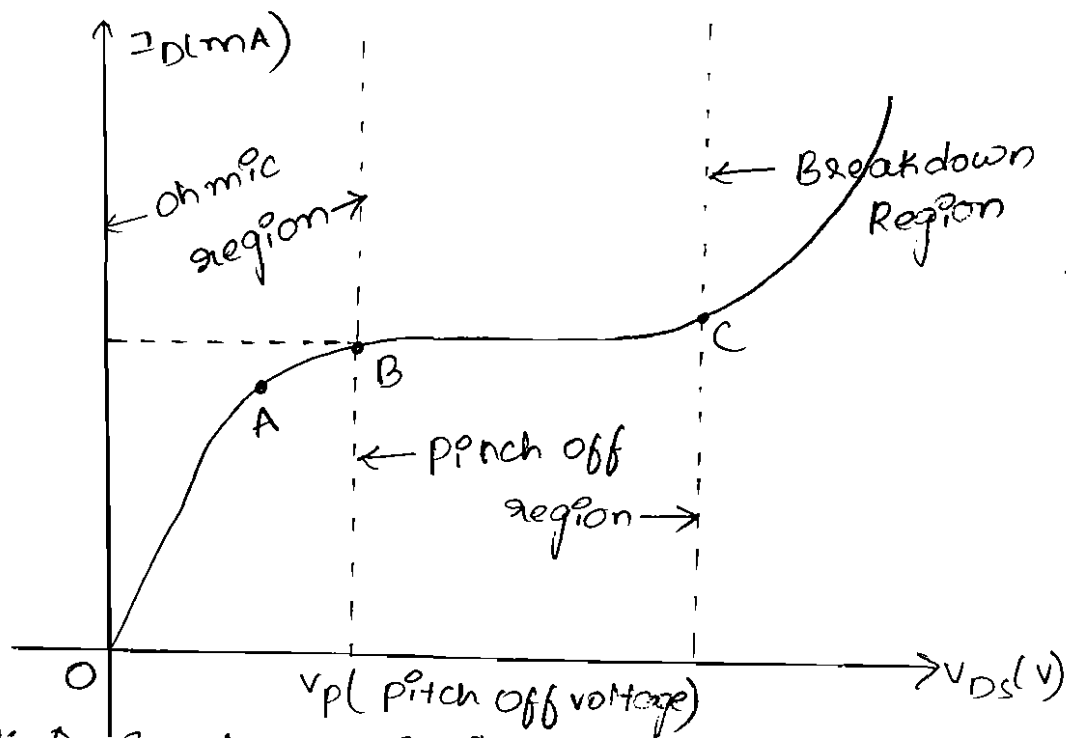 I_D(mA)
ohmic
region
Breakdown
Region
A
B
C
pinch off
region
O
V_P( pitch off voltage)
V_DS(V)